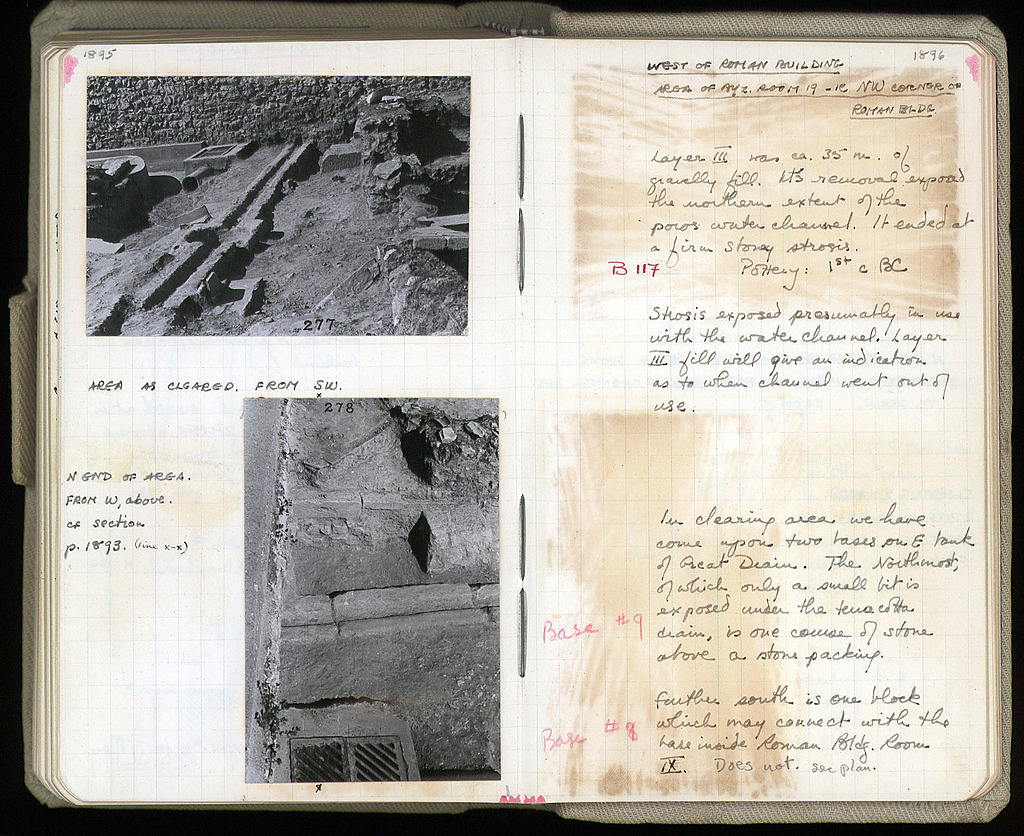 1895
277
AREA AS CLEARED. FROM SW.
278
N END OF AREA.
FROM W, above.
cf section
p. 1893. (line x-x)
1896
WEST OF ROMAN BUILDING
AREA OF BYZ. ROOM 19 - NW CORNER OF
ROMAN BLDG
Layer III was ca. 35 m. of
gravelly fill. Its removal exposed
the northern extent of the
poros water channel. It ended at
a firm stony strosis.
B 117 Pottery: 1st c BC
Strosis exposed presumably in use
with the water channel. Layer
III fill will give an indication
as to when channel went out of
use.
In clearing area we have
come upon two bases on E bank
of Great Drain. The Northmost,
of which only a small bit is
exposed under the terracotta
Base #9 drain, is one course of stone
above a stone packing.
Further south is one block
which may connect with the
Base #8 base inside Roman Bldg. Room
IX. Does not. see plan.